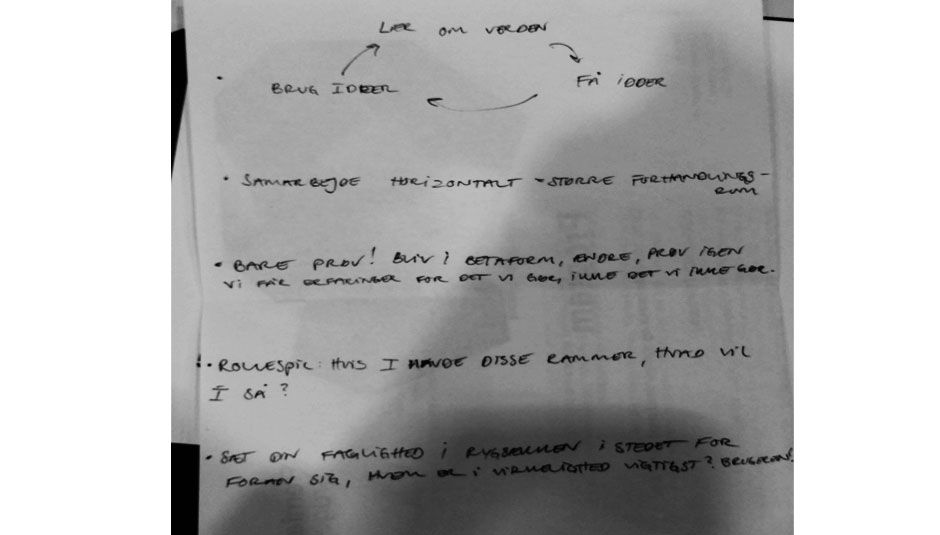 LÆR OM VERDEN
BRUG IDEER
FÅ IDDER
• SAMARBEJDE HORIZONTALT - STØRRE FORHANDLINGS-
RUM
• BARE PRØV! BLIV I BETAFORM, ÆNDRE, PRØV IGEN
VI FÅR ERFARINGER FOR DET VI GØR, IKKE DET VI IKKE GØR.
• ROLLESPIL: HVIS I HAVDE DISSE RAMMER, HVAD VIL
I SÅ?
• SÆT DIN FAGLIGHED I RYGSÆKKEN I STEDET FOR
FORAN SIG, HVEM ER I VIRKELIGHED VIGTIGST? BRUGEREN!